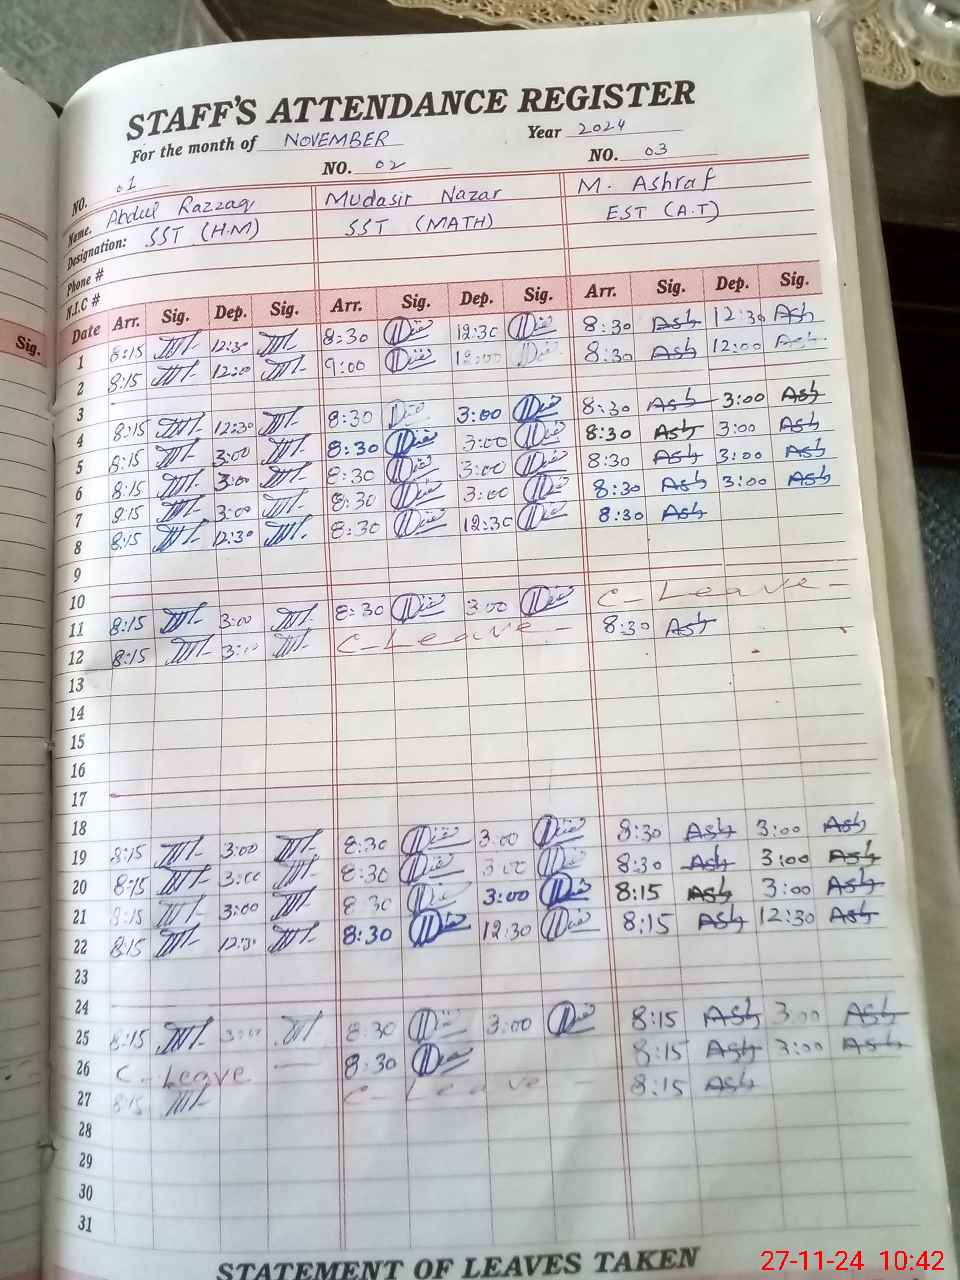 STAFF'S ATTENDANCE REGISTER
For the month of NOVEMBER Year 2024
NO. 01 NO. 02 NO. 03
Name. Abdul Razzaq Mudasir Nazar M. Ashraf
Designation: SST (H.M) SST (MATH) EST (A.T)
Phone #
N.I.C #
Date Arr. Sig. Dep. Sig. Arr. Sig. Dep. Sig. Arr. Sig. Dep. Sig.
1 8:15 12:30 8:30 12:30 8:30 Ash 12:30 Ash
2 8:15 12:00 9:00 12:00 8:30 Ash 12:00 Ash
3
4 8:15 12:30 8:30 3:00 8:30 Ash 3:00 Ash
5 8:15 3:00 8:30 3:00 8:30 Ash 3:00 Ash
6 8:15 3:00 8:30 3:00 8:30 Ash 3:00 Ash
7 8:15 3:00 8:30 3:00 8:30 Ash 3:00 Ash
8 8:15 12:30 8:30 12:30 8:30 Ash
9
10
11 8:15 3:00 8:30 3:00 C-Leave-
12 8:15 3:00 C-Leave- 8:30 Ash
13
14
15
16
17
18
19 8:15 3:00 8:30 3:00 8:30 Ash 3:00 Ash
20 8:15 3:00 8:30 3:00 8:30 Ash 3:00 Ash
21 8:15 3:00 8:30 3:00 8:15 Ash 3:00 Ash
22 8:15 12:30 8:30 12:30 8:15 Ash 12:30 Ash
23
24
25 8:15 3:00 8:30 3:00 8:15 Ash 3:00 Ash
26 C-Leave - 8:30 8:15 Ash 3:00 Ash
27 8:15 C-Leave - 8:15 Ash
28
29
30
31
STATEMENT OF LEAVES TAKEN
Sig.
27-11-24 10:42